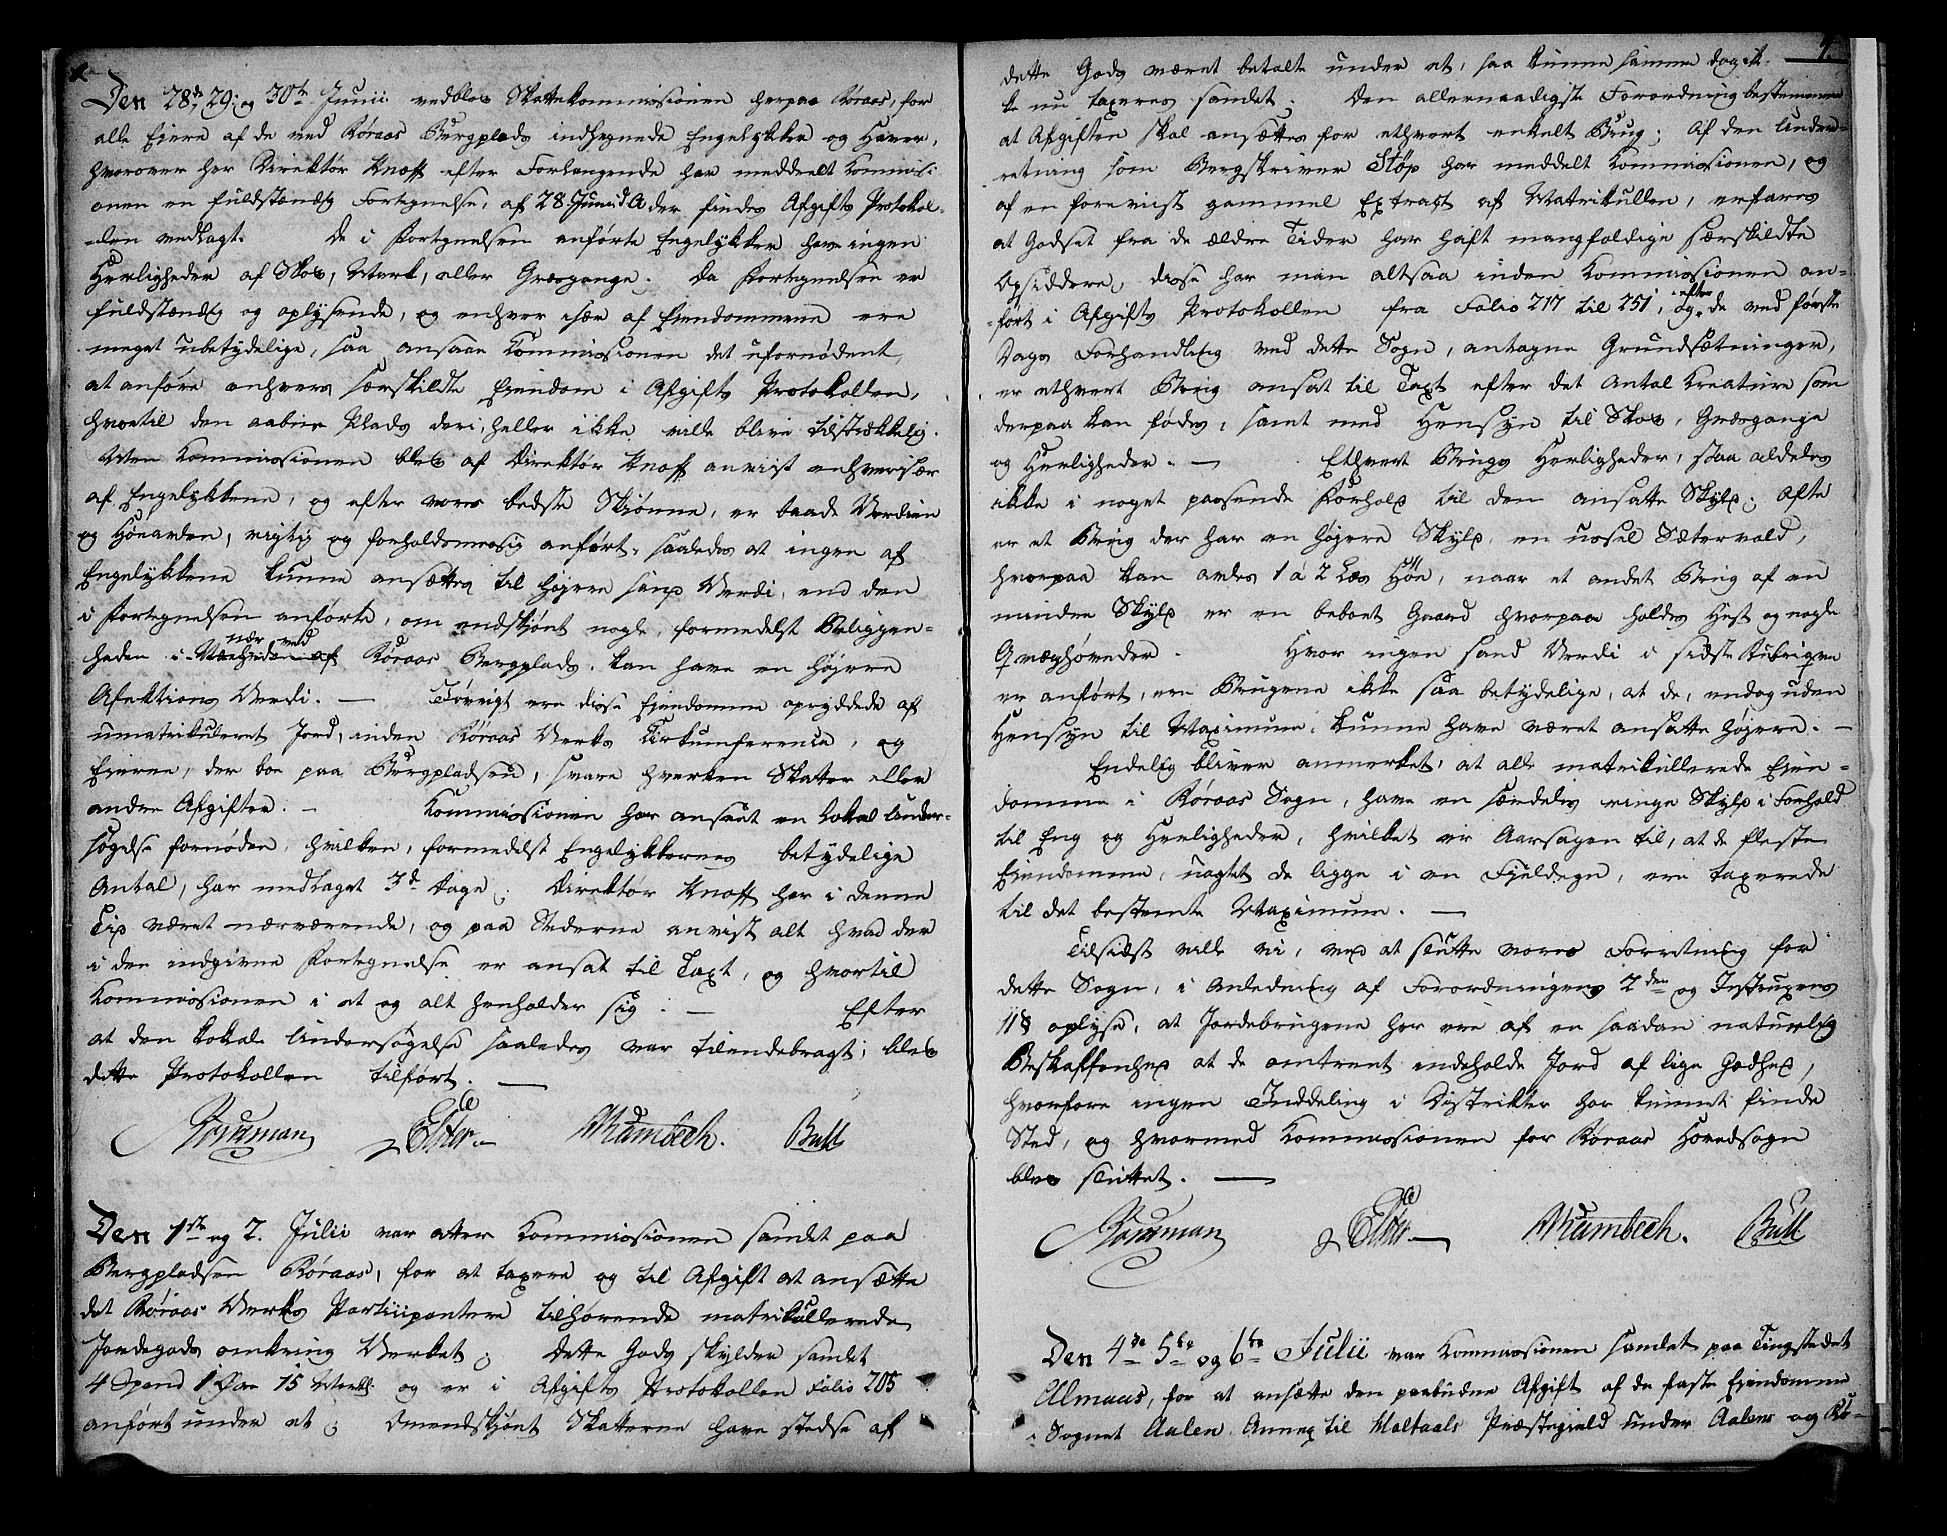 Den 28de, 29 og 30te Junii vedblev Skattekommissionen herpaa Røraas, for
alle Eiere af de ved Røraas Bergplads indhegnede Engeløkke og Haver,
hvorover her Direktør Knoff efter Forlangende har meddeelt Kommissi
onen en fuldstændig Fortegnelse, af 28 Junii d. A. der findes Afgifts Protokol-
len vedlagt. De i Fortegnelsen anførte Engeløkker have ingen
Herligheder af Skov, Mark, eller Græsgange. Da Fortegnelsen er
fuldstændig og oplysende, og enhver især af Eiendommene ere
meget ubetydelige, saa ansaae Kommissionen det ufornødent
at anføre enhvers særskildte Eiendom i Afgifts Protokollen,
hvortil den aabne Plads deri heller ikke vilde blive tilstrækkelig.
Men Kommissionen blev af Direktør Knoff anvist enhver især
af Engeløkkene, og efter vores bedste Skiønne, er baade Verdien
og Høeavlen, rigtig og forholdsmæssig anført, saaledes at ingen af
Engeløkkene kunne ansættes til højere sand Verdi, end den
i Fortegnelsen anførte, om endskjønt nogle, formedelst Beliggen-
heden nær ved Røraas Bergplads, kan have en højere
Afektions Verdi. — Iøvrigt ere disse Eiendomme opryddede af
umatrikuleret Jord, inden Røraas Verks Cirkumference, og
Eierne, der boe paa Bergpladsen, svare hverken Skatter eller
andre Afgifter. — Kommissionen har anseet en Lokal Under-
søgelse fornøden, hvilken, formedelst Engeløkkernes betydelige
Antal, har medtaget 3de Dage. Direktør Knoff har i denne
Tid været nærværende, og paa Stederne anvist alt hvad der
i den indgivne Fortegnelse er ansat til Taxt, og hvortil
Kommissionen i et og alt henholder sig. — Efter
at den Lokale Undersøgelse saaledes var tilendebragt, blev
dette Protokollen tilført. —
Elster Mumbech. Bull
Den 1ste og 2. Julii var atter Kommissionen samlet paa
Bergpladsen Røraas, for at taxere og til Afgift at ansætte
det Røraas Verks Partiipantere tilhørende matrikullerede
Jordegods omkring Verket; dette Gods skylder samlet
4 Spand 1 Øre 15 Mkl. og er i Afgifts Protokollen Folio 205
anført under et; Omendskjønt Skatterne have stedse af
dette Gods været betalte under et, saa kunne samme dog ik-
ke nu taxeres samlet; Den allernaadigste Forordning bestemmer
at Afgiften skal ansættes for ethvert enkelt Brug; Af den Under-
retning som Bergskriver Støp har meddelt Kommissionen, og
af en forevist gammel Extract af Matrikullen, erfares
at Godset fra de ældre Tider har haft mangfoldige særskildte
Opsiddere, disse har man altsaa inden Kommissionen an-
ført i Afgifts Protokollen fra Folio 217 til 251, og efter de ved første
Dags Forhandling ved dette Sogn, antagne Grundsætninger,
er ethvert Brug ansat til Taxt efter det Antal Kreature som
derpaa kan fødes, samt med Hensyn til Skov, Græsgange
og Herligheder. — Ethvert Brugs Herligheder, staa aldeles
ikke i noget passende Forhold til den ansatte Skyld; ofte
er et Brug der har en højere Skyld, en ussel Sætervold,
hvorpaa kan avles 1 á 2 Læs Høe, naar et andet Brug af en
mindre Skyld er en beboet Gaard hvorpaa holdes Hest og nogle
Qvæghøveder. Hvor ingen sand Verdi i sidste Rubriqve
er anført, ere Brugene ikke saa betydelige, at de, endog uden
Hensyn til Maximum, kunne have været ansatte højere. —
Endelig bliver anmerket, at alle matrikullerede Eien-
domme i Røraas Sogn, have en særdeles ringe Skyld i Forhold
til Eng og Herligheder, hvilket er Aarsagen til, at de fleste
Eiendomme, uagtet de ligge i en Fjeldegn, ere taxerede
til det bestemte Maximum. —
Tilsidst ville vi, ved at slutte vores Forretning for
dette Sogn, i Anledning af Forordningens 2den og Instruxens
11§ oplyse, at Jordebrugene her ere af en saadan naturlig
Beskaffenhed at de omtrent indeholde Jord af lige Godhed,
hvorfore ingen Inddeling i Distrikter har kunnet finde
Sted, og hvormed Kommissionen for Røraas Hovedsogn
blev sluttet. —
Elster Mumbech. Bull
Den 4de 5te og 6te Julii var Kommissionen samlet paa Tingstedet
Elmaas, for at ansætte den paabudne Afgift af de faste Eiendomme
i Sognet Aalen Annex til Holtaals Præstegield under Aalens og Rø-